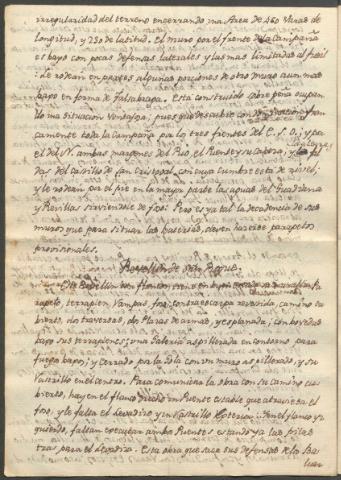 irregularidad del terreno encerrando una Area de 460 Varas de
longitud, y 230 de latitud. El muro por el frente de la Campaña
es bajo con pocas defensas laterales y las mas limitadas al fusil
le rodean en parages algunas porciones de otro muro aun mas
bajo en forma de falsabraga. Está construido sobre peña ocupan
do una situacion ventajosa; pues que descubre con dominacion fran
camente toda la Campaña por lo tres frentes del E. S. O.; y por
el del N. ambas margenes del Rio, el Puente y su cabeza, y las fal
das del Castillo de San Cristoval, con cuya cumbre está de nivel;
y le rodean por el pie en la mayor parte las aguas del Guadiana
y Revillas sirviendole de foso. Pero es ya tal la decadencia de sus
muros que para situar las baterias, deven hacerse parapetos
provisionales.
Rebellin de San Roque.
Este Rebellin con flancos
rapeto, terraplen Vanqueta, foso, contraescarpa revestida, camino cu
bierto, dos traversos, dos Plazas de armas, y esplanada; con bovedas
bajo sus terraplenes; una Galeria aspillerada en contorno para
fuego bajo; y cerrado por la Gola con un muro aspillerado, y su
rastrillo en el centro. Para comunicar la obra con su camino cu
bierto, hay en el flanco derecho un Puente estable que atraviesa el
foso, y le falta el Levadizo y un rastrillo esterior: En el flanco iz
quierdo, faltan executar ambos Puentes estando ya las pilas
tras para el levadizo. Esta obra que saca sus defensas de los Ba
luar